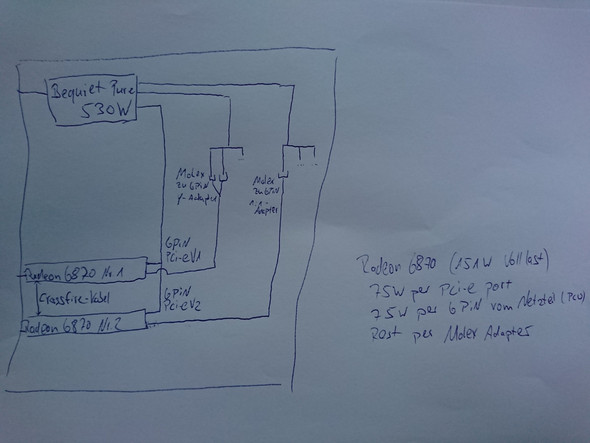 Bequiet Pure
530W
Molex
zu 6PiN
Y-Adapter
Molex
zu 6PiN
1:1
Adapter
6PiN
Pci-eV1
Radeon 6870 Nr.1
Crossfire-Kabel
6PiN
Pci-eV2
Radeon 6870 Nr.2
Radeon 6870 (151W Volllast)
75W per Pci-e port
75W per 6PiN vom Netzteil (PCU)
Rest per Molex Adapter